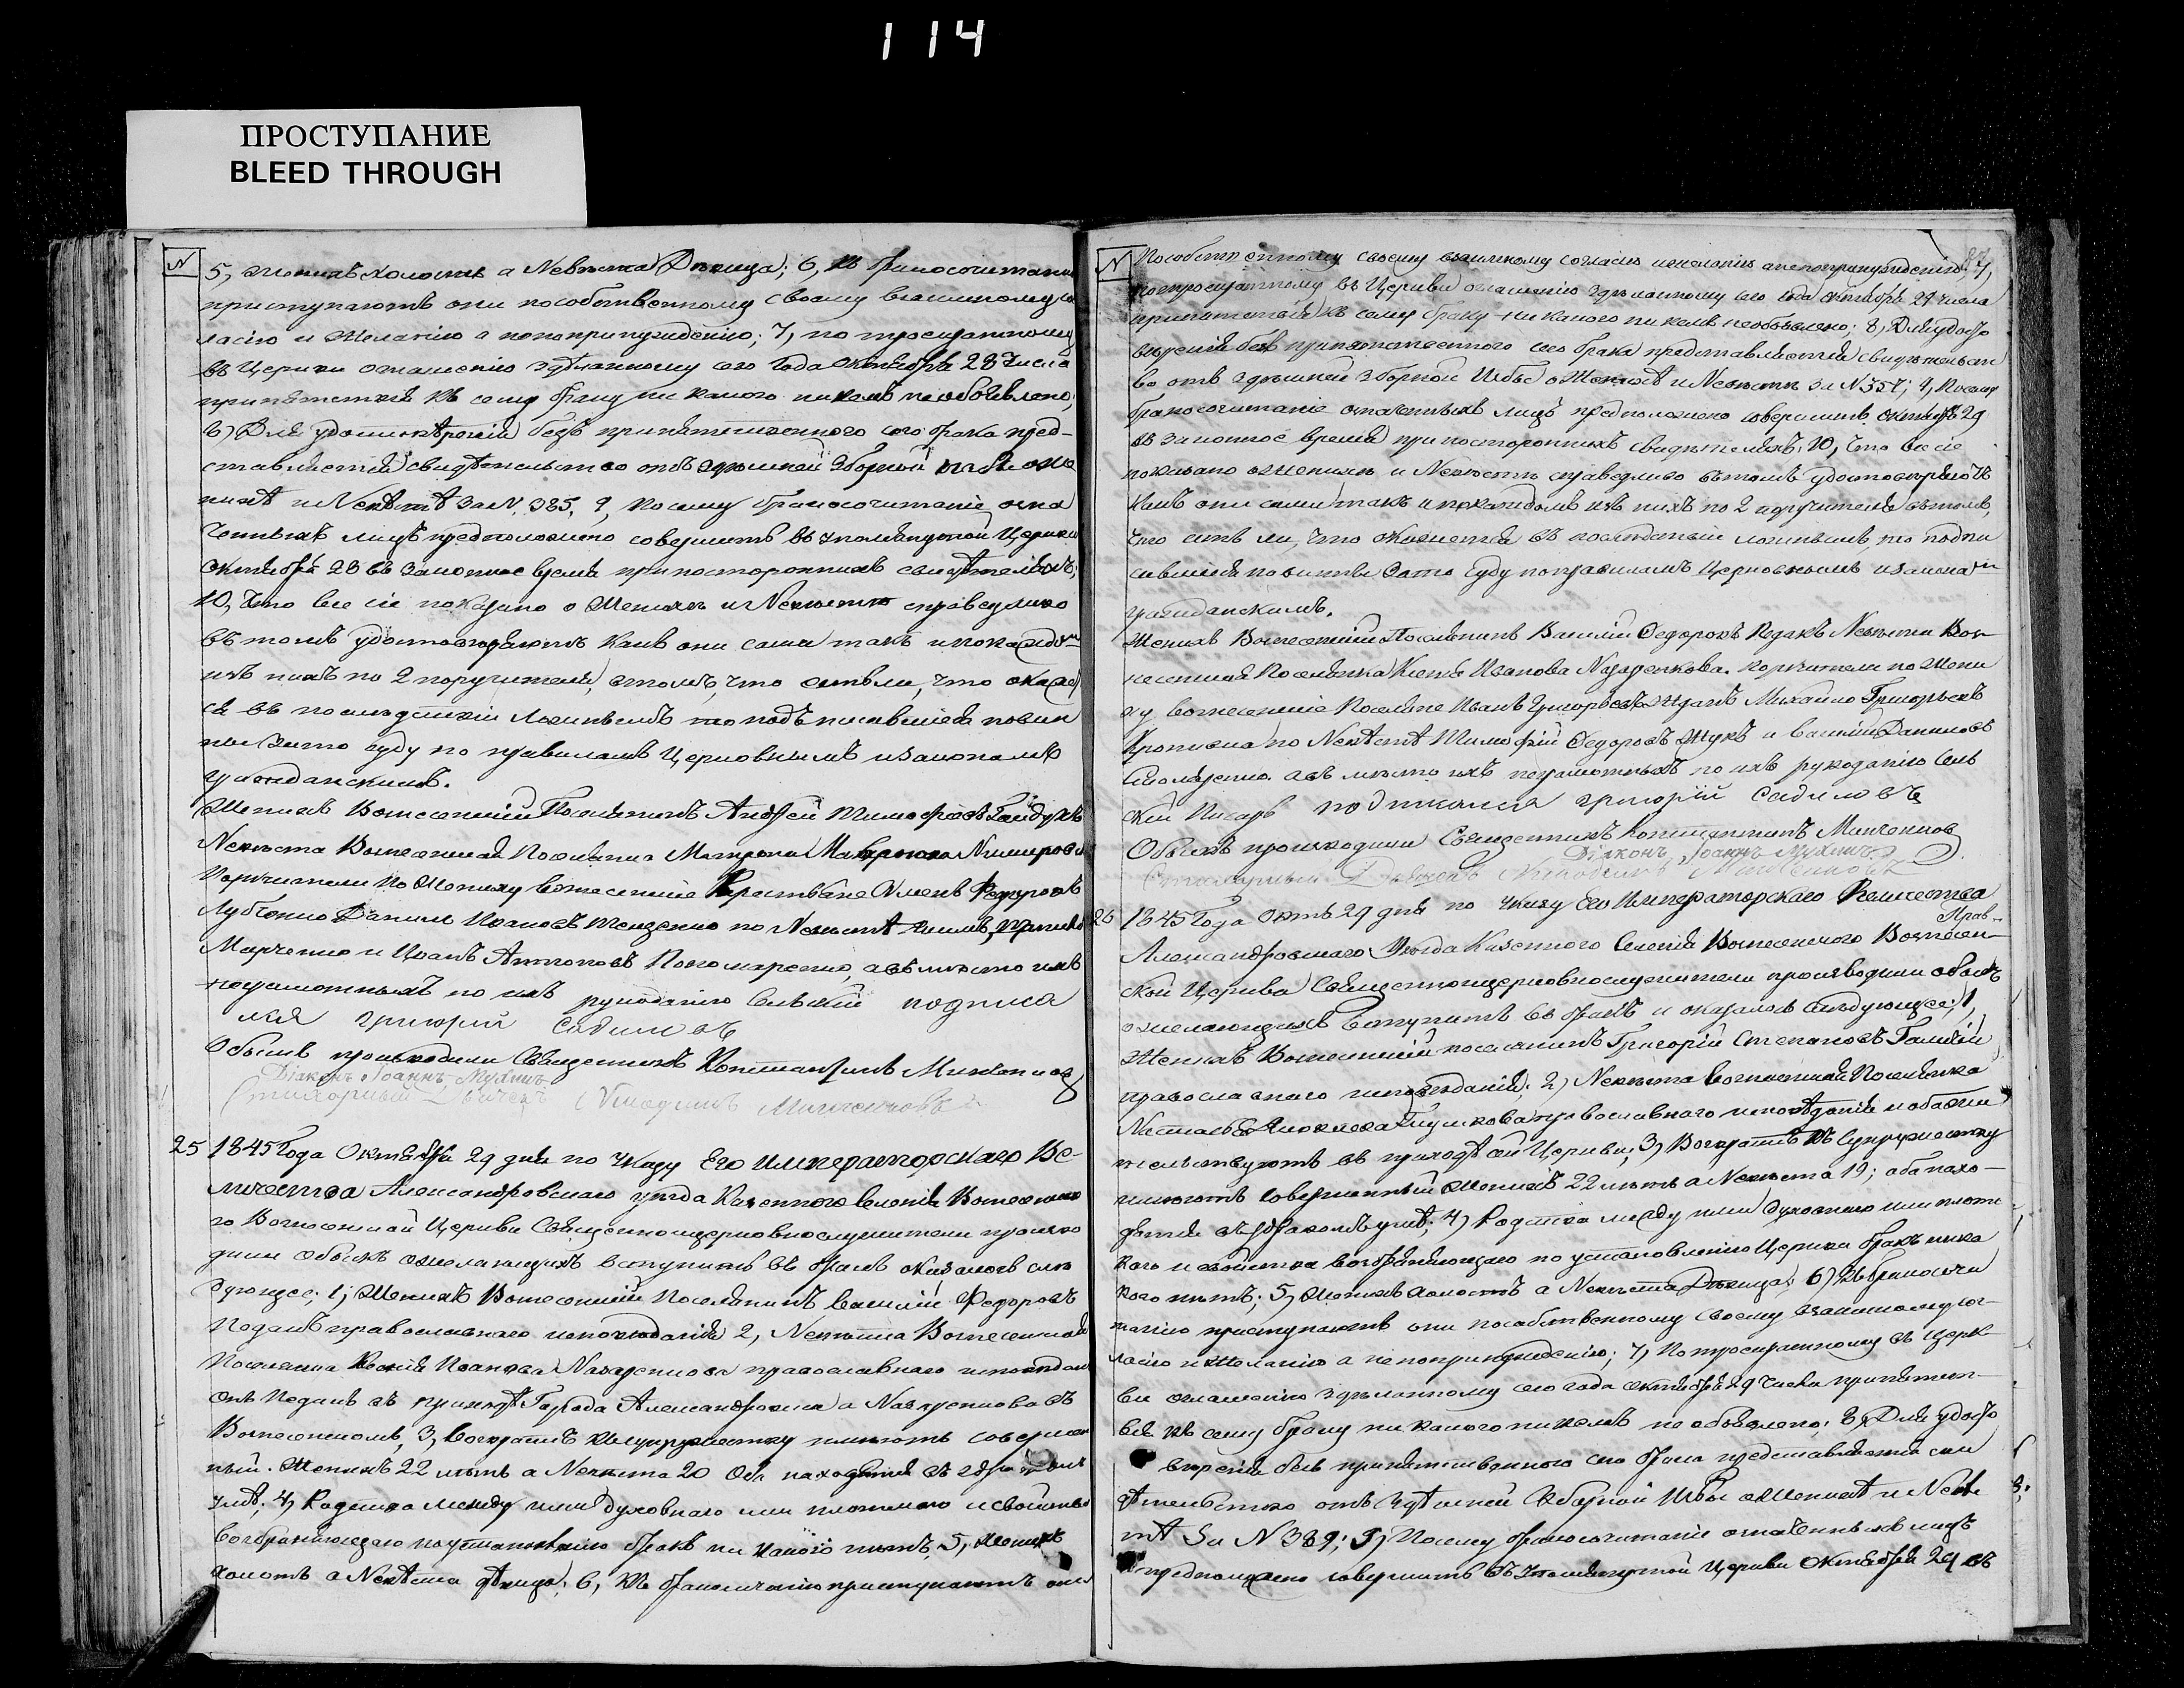 114
ПРОСТУПАНИЕ
BLEED THROUGH
N
5, Женихъ холостъ а Невѣста Дѣвица; 6, Къ бракосочетанію
приступаютъ они по собственному своему взаимному со
ласію и желанію а непопринужденію; 7, по троекратному
въ Церкви оглашенію здѣланному сего Года Октября 28 Числа
припятствія къ сему браку ни какого никемъ не объявлено;
8) Для удостовѣренія безъ припятственного сего брака пред-
ставляется свидѣтельство отъ здѣшней Зборной избы о же
нихѣ и Невѣстѣ За N. 385, 9, Посему бракосочитаніе озна
ченныхъ лицъ предположено совершить въ упомянутой Церкви
Октября 28 въ законное время при постороннихъ свидѣтеляхъ;
10, Что все сіе показано о Женихѣ и Невѣстѣ справедливо
въ томъ удостовѣряютъ какъ они сами такъ и по каждому
изъ нихъ по 2 поручителя, втомъ, что естьли, что окажет
ся въ послѣдствіи ложнымъ то подъписавшіеся повин
ны Зато суду по правиламъ Церковнымъ и законамъ
гражданскимъ.
Женихъ Вознесенскій Поселянинъ Андрей Тимофѣевъ Гайдукъ
Невѣста Вознесенская Поселянка Матрона
Поручители По Жениху Вознесенскіе Ѳедоровъ
Данило Ивановъ по Невѣстѣ
Марченко и Иванъ Антоновъ Пономаренко, а въмѣсто ихъ
неграмотныхъ по ихъ рукоданію Сельскій подписа
лся григорій садиловъ
Обыскъ производили Священникъ Константинъ Минченковъ
Діаконъ Іоаннъ Мухинъ
Стихарный Дьячекъ Никодимъ Минченковъ
25 1845 Года Октября 29 дня по Указу Его Императорскаго Ве-
личества Александровскаго уѣзда Казенного Селенія Вознесенско
го Вознесенской Церкви Священноцерковнослужители произво
дили обыскъ ожелающихъ вступить въ бракъ оказалось слѣ
дующее; 1, Женихъ Вознесенскій Поселянинъ Василій Федоровъ
Педакъ православнаго исповѣданія 2, Невѣста Вознесенская
Поселянка Ксенія Иванова Назаренкова православнаго исповѣдан
онъ Педакъ въ приходѣ Города Александровска а Назаренкова въ
Вознесенскомъ, 3, Возрастъ къ супружеству имѣютъ соверше
ный. Женихъ 22 лѣтъ а Невѣста 20 Оба находятся въ здравомъ
умѣ; 4, Родства между ими духовнаго или плотского и свойства
возбраняющаго по установленію бракъ ни какого нѣтъ; 5, Женихъ
холостъ а Невѣста дѣвица; 6, Къ бракосочетанію приступаютъ они
N
По собственному своему взаимному согласію и желанію а непопринужденію; 7,
по троекратному въ Церкви оглашенію здѣланному сего Года октября 29 числа
припятствія къ сему браку ни какого ни кемъ необъявлено; 8, Для удосто
вѣренія безъ припятственного сего брака представляется свидѣтельст
во отъ здѣшней Зборной Избы о Женихѣ и Невѣстѣ за N 357; 9, Посему
бракосочитаніе означенныхъ лицъ предположено совершить октября 29
въ законное время при постороннихъ свидѣтеляхъ. 10, Что все сіе
показано о Женихѣ и Невѣстѣ справедливо въ томъ удостовѣряютъ
какъ они сами такъ и по каждомъ изъ нихъ по 2 поручителя въ томъ,
что есть ли, что окажется въ послѣдствіи ложнымъ, то подпи
савшіеся повинны Зато суду по правиламъ Церковнымъ и законамъ
гражданскимъ.
Женихъ Вознесенскій Поселянинъ Василій Федоровъ Педакъ Невѣста Воз-
несенская Поселянка Ксенія Иванова Назаренкова. Поручители по Жени
ху вознесенскіе Поселяне Иванъ Григорьевъ Михайло Григорьевъ
Кропивка по Невѣстѣ Тимофѣй Федоровъ Жукъ и Василій Даниловъ
а въ мѣсто ихъ неграмотныхъ по ихъ рукоданію Сель
скій Писарь подписался григорій садиловъ
Обыскъ производили Священникъ Константинъ Минченковъ
Діаконъ Іоаннъ Мухинъ
Стихарный Дьячекъ Никодимъ Минченковъ
26 1845 Года Октя 29 дня по Указу Его Императорскаго Величества
Александровскаго Уѣзда Казенного Селенія Вознесенского Вознесен-
ской Церкви Священноцерковнослужители производили обыскъ
ожелающихъ вступить въ бракъ и оказалось слѣдующее; 1,
Женихъ Вознесенскій поселянинъ Григорій Степановъ
православного исповѣданія; 2) Невѣста Вознесенская Поселянка
православного исповѣданія и оба жи
тельствуютъ въ приходѣ сей Церкви; 3) Возрастъ къ Супружеству
имѣютъ совершенный Женихъ 22 лѣтъ а Невѣста 19; оба нахо-
дятся въ здравомъ умѣ; 4) Родства между ими духовнаго или плотс
кого и свойства возбраняющаго по установленію Церкви бракъ ника
кого нѣтъ; 5) Женихъ холостъ а Невѣста Дѣвица; 6) Къ бракосоче
танію приступаютъ они по собственному своему взаимному сог-
ласію и желанію а не по принужденію; 7) По троекратному въ Церк-
ви оглашенію здѣланному сего года октября 29 числа припятст-
вія къ сему браку ни какого никемъ не объявлено; 8) Для удосто
вѣренія безъ припятственного сего брака представляется сви
дѣтельство отъ здѣшней Зборной Избы о Женихѣ и Невѣ
стѣ За N 389; 9) Посему бракосочитаніе означенныхъ лицъ
предположено совершить въ Упомянутой Церкви Октября 29 въ